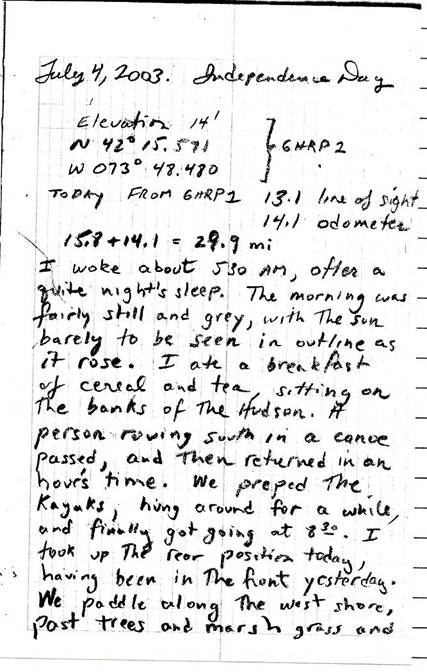 July 4, 2003. Independence Day
Elevation 14'
N 42° 15.591 GHRP2
W 073° 48.480
TODAY FROM GHRP1 13.1 line of sight
14.1 odometer
15.8 + 14.1 = 29.9 mi
I woke about 530 AM, after a
quite night's sleep. The morning was
fairly still and grey, with The sun
barely to be seen in outline as
it rose. I ate a breakfast
of cereal and tea, sitting on
The banks of The Hudson. A
person rowing south in a canoe
passed, and Then returned in an
hour's time. We preped The
Kayaks, hung around for a while,
and finally got going at 8 30. I
took up The rear position today,
having been in The front yesterday.
We paddle along The west shore,
past trees and marsh grass and